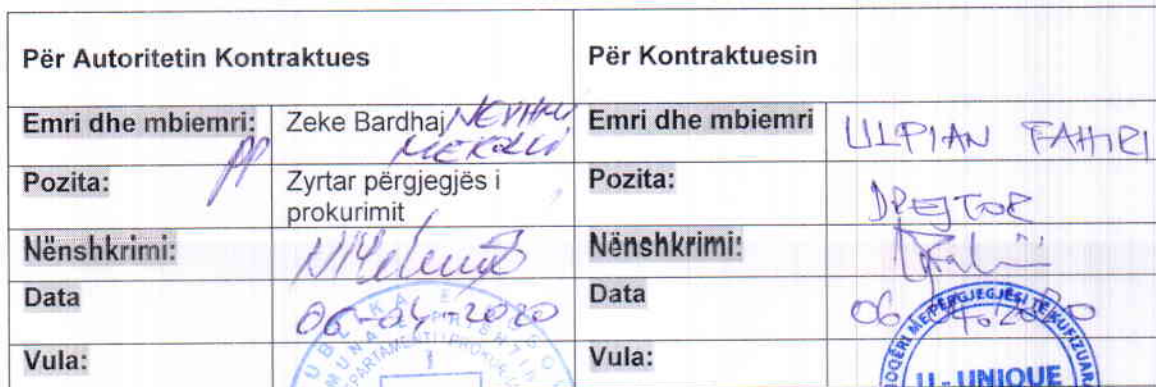 Për Autoritetin Kontraktues
Për Kontraktuesin
Emri dhe mbiemri:
Zeke Bardhaj
Emri dhe mbiemri
ULPIAN FAHIRI
Pozita:
Zyrtar përgjegjës i
prokurimit
Pozita:
DREJTOR
Nënshkrimi:
Nënshkrimi:
Data
06-04-2020
Data
06.04.2020
Vula:
Vula:
U - UNIQUE